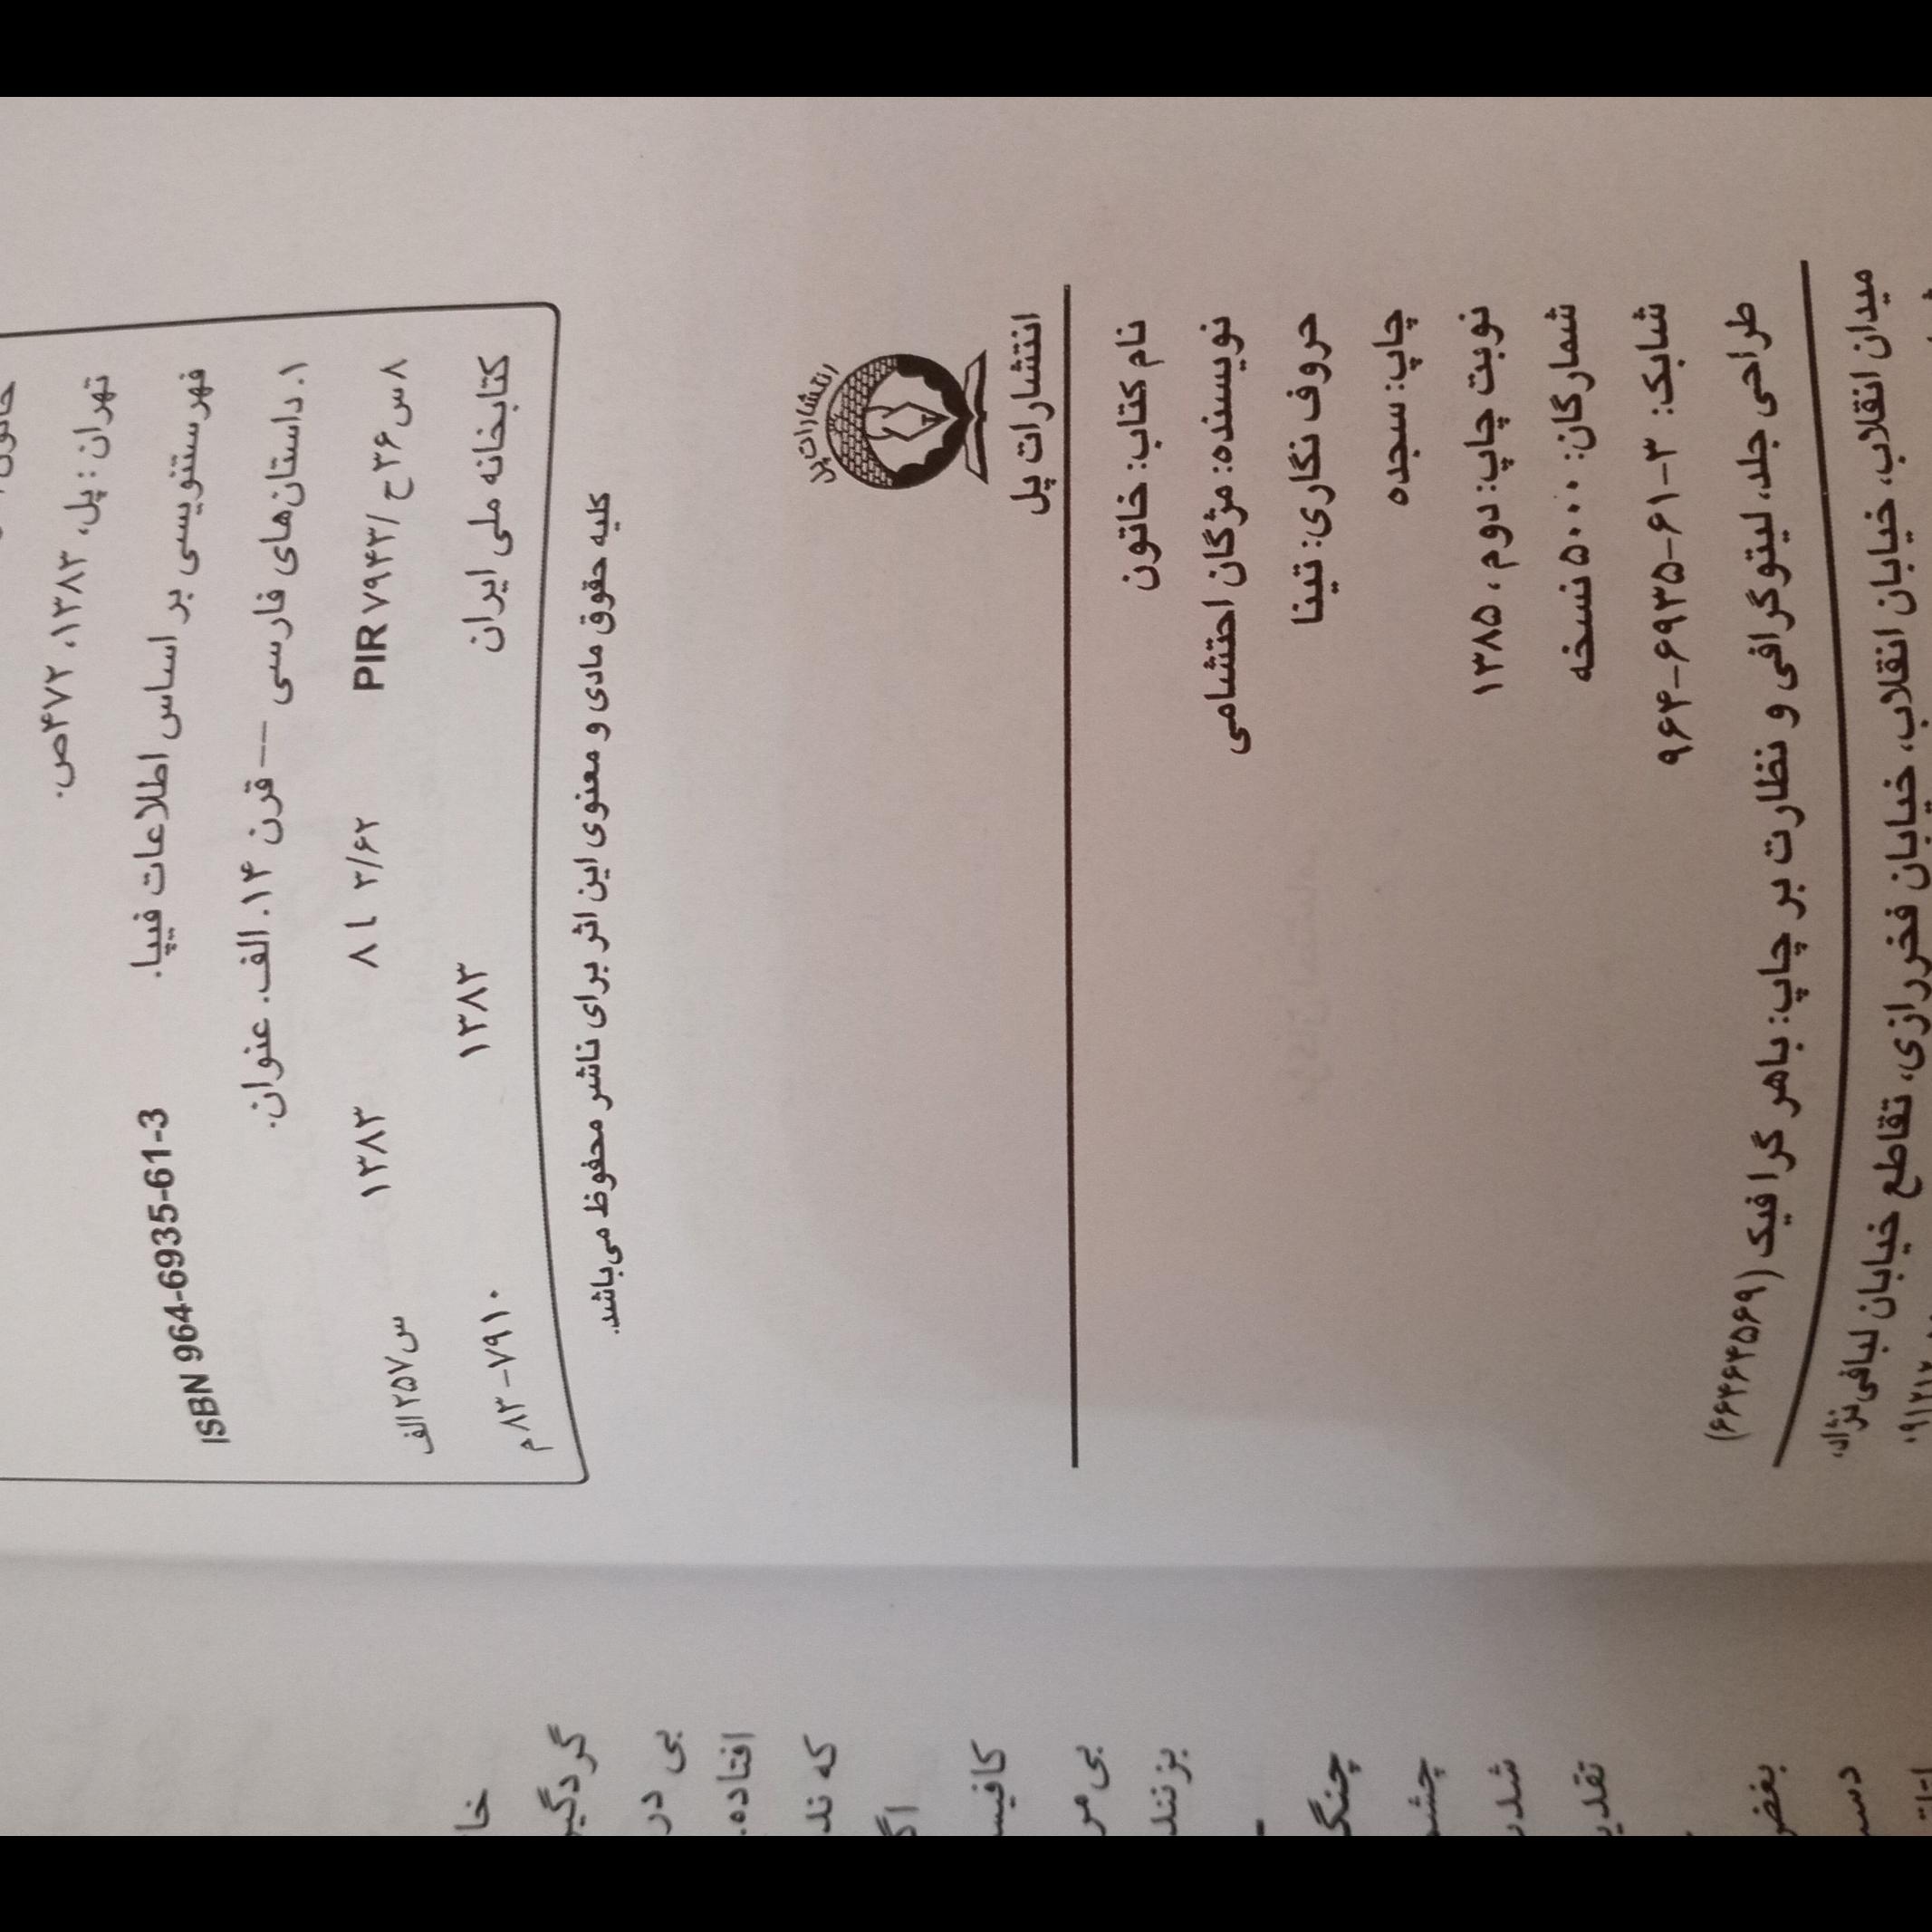 تهران: پل، ۱۳۸۳، ۴۷۲ص.
ISBN 964-6935-61-3
فهرستنویسی بر اساس اطلاعات فیپا.
۱. داستان‌های فارسی -- قرن ۱۴. الف. عنوان.
۸س۳۶ح/ PIR ۷۹۴۳ ۸ ا ۳/۶۲ ۱۳۸۳ س۲۵۷الف
کتابخانه ملی ایران ۱۳۸۳ ۷۹۱۰-۸۳م
کلیه حقوق مادی و معنوی این اثر برای ناشر محفوظ می‌باشد.
انتشارات پل
انتشارات پل
نام کتاب: خاتون
نویسنده: مژگان احتشامی
حروف نگاری: تینا
چاپ: سجده
نوبت چاپ: دوم، ۱۳۸۵
شمارگان: ۵۰۰۰نسخه
شابک: ۳-۶۱-۶۹۳۵-۹۶۴
طراحی جلد، لیتوگرافی و نظارت بر چاپ: باهر گرافیک (۶۶۴۶۴۵۶۹)
میدان انقلاب، خیابان انقلاب، خیابان فخررازی، تقاطع خیابان لبافی‌نژاد،
گردگیر
بی در
افتاده.
که ند
بی‌مر
بزنند
چنگ
چشم
شدر